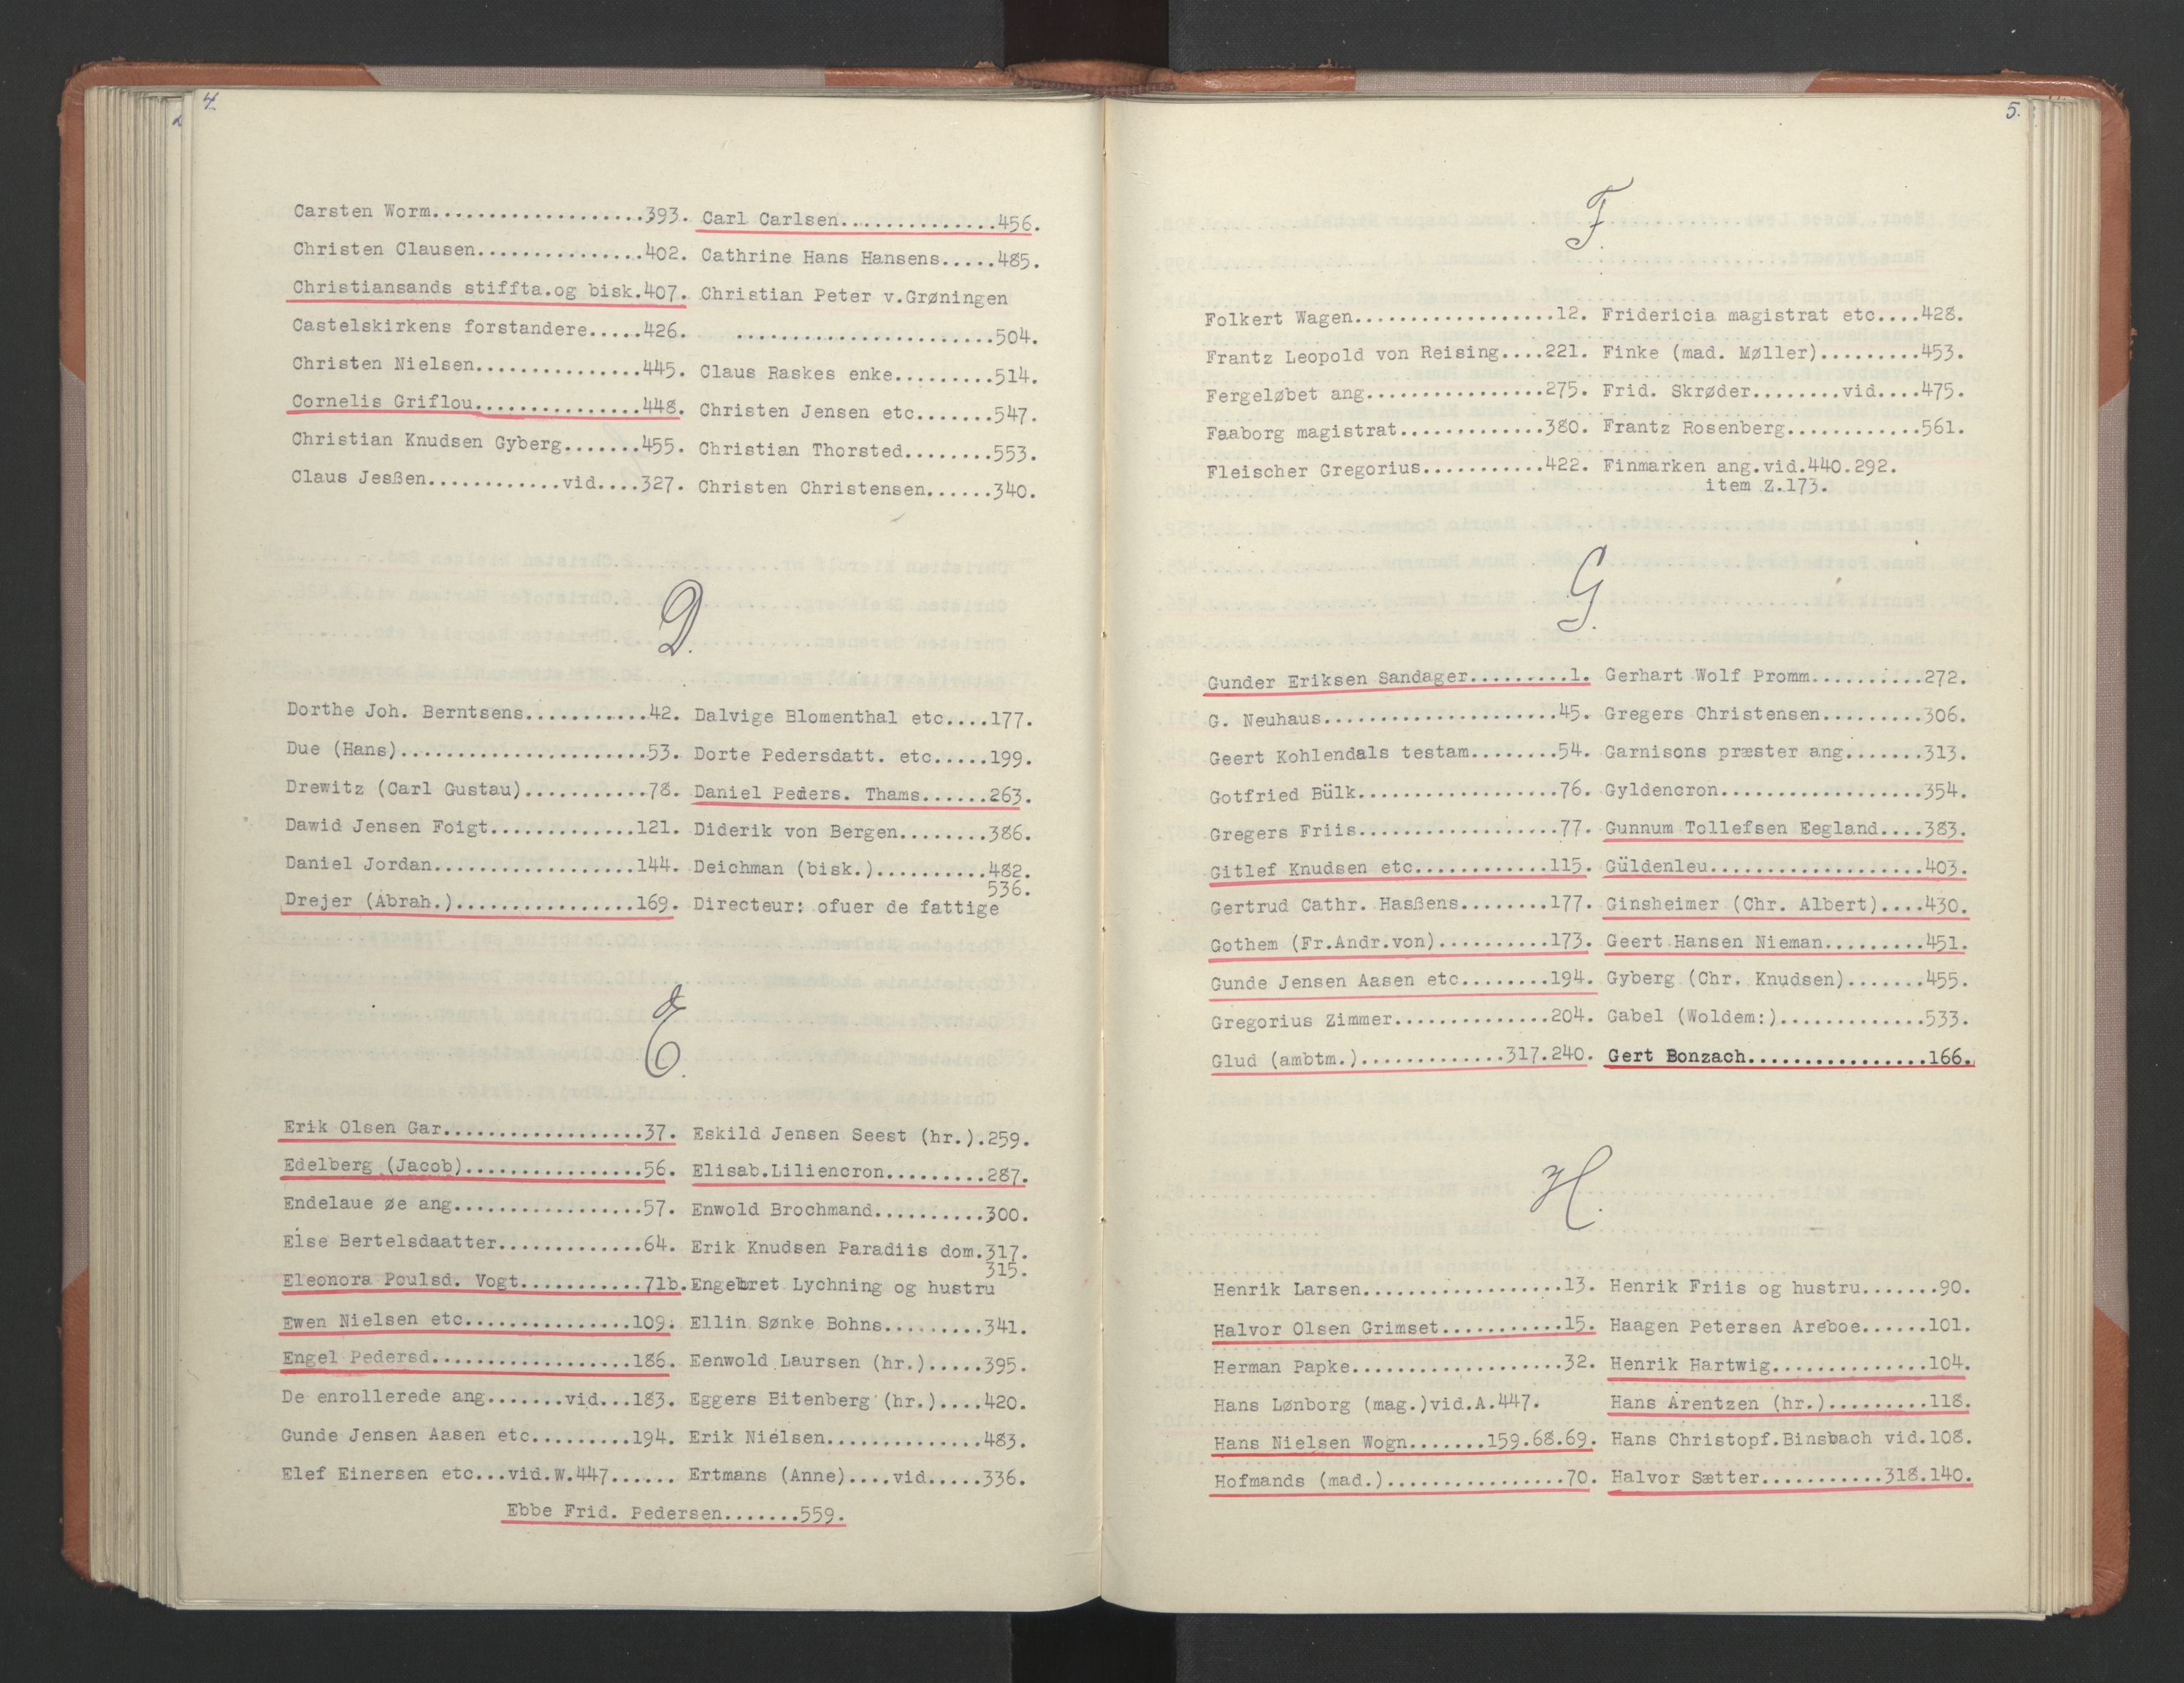 4.
Carsten Worm...................393.
Christen Clausen...............402.
Christiansands stiffta.og bisk.407.
Castelskirkens forstandere.....426.
Christen Nielsen...............445.
Cornelis Griflou...............448.
Christian Knudsen Gyberg.......455.
Claus Jesßen............vid....327.
Carl Carlsen..............456.
Cathrine Hans Hansens.....485.
Christian Peter v.Grøningen
.......................504.
Claus Raskes enke.........514.
Christen Jensen etc.......547.
Christian Thorsted........553.
Christen Christensen......340.
D.
Dorthe Joh. Berntsens...........42.
Due (Hans)......................53.
Drewitz (Carl Gustau)...........78.
Dawid Jensen Foigt.............121.
Daniel Jordan..................144.
Drejer (Abrah.)................169.
Dalvige Blomenthal etc....177.
Dorte Pedersdatt. etc.....199.
Daniel Peders. Thams......263.
Diderik von Bergen........386.
Deichman (bisk.)..........482.
536.
Directeur: ofuer de fattige
E.
Erik Olsen Gar..................37.
Edelberg (Jacob)................56.
Endelaue øe ang.................57.
Else Bertelsdaatter.............64.
Eleonora Poulsd. Vogt...........71b.
Ewen Nielsen etc...............109.
Engel Pedersd..................186.
De enrollerede ang.......vid...183.
Gunde Jensen Aasen etc.........194.
Elef Einersen etc...vid.W.447......
Eskild Jensen Seest (hr.).259.
Elisab.Liliencron.........287.
Enwold Brochmand..........300.
Erik Knudsen Paradiis dom.317.
315.
Engebret Lychning og hustru
Ellin Sønke Bohns.........341.
Eenwold Laursen (hr.).....395.
Eggers Bitenberg (hr.)....420.
Erik Nielsen..............483.
Ertmans (Anne)....vid.....336.
Ebbe Frid. Pedersen.......559.
5.
F.
Folkert Wagen..................12.
Frantz Leopold von Reising....221.
Fergeløbet ang................275.
Faaborg magistrat.............380.
Fleischer Gregorius...........422.
Fridericia magistrat etc....428.
Finke (mad. Møller).........453.
Frid. Skrøder........vid....475.
Frantz Rosenberg............561.
Finmarken ang.vid.440.292.
item Z.173.
G.
Gunder Eriksen Sandager.........1.
G. Neuhaus.....................45.
Geert Kohlendals testam........54.
Gotfried Bülk..................76.
Gregers Friis..................77.
Gitlef Knudsen etc............115.
Gertrud Cathr. Hasßens........177.
Gothem (Fr.Andr.von)..........173.
Gunde Jensen Aasen etc........194.
Gregorius Zimmer..............204.
Glud (ambtm.).............317.240.
Gerhart Wolf Promm..........272.
Gregers Christensen.........306.
Garnisons præster ang.......313.
Gyldencron..................354.
Gunnum Tollefsen Eegland....383.
Güldenleu...................403.
Ginsheimer (Chr. Albert)....430.
Geert Hansen Nieman.........451.
Gyberg (Chr. Knudsen).......455.
Gabel (Woldem:).............533.
Gert Bonzach................166.
H.
Henrik Larsen..................13.
Halvor Olsen Grimset...........15.
Herman Papke...................32.
Hans Lønborg (mag.)vid.A.447.
Hans Nielsen Wogn.......159.68.69.
Hofmands (mad.)................70.
Henrik Friis og hustru.......90.
Haagen Petersen Areboe......101.
Henrik Hartwig..............104.
Hans Arentzen (hr.).........118.
Hans Christopf.Binsbach vid.108.
Halvor Sætter...........318.140.